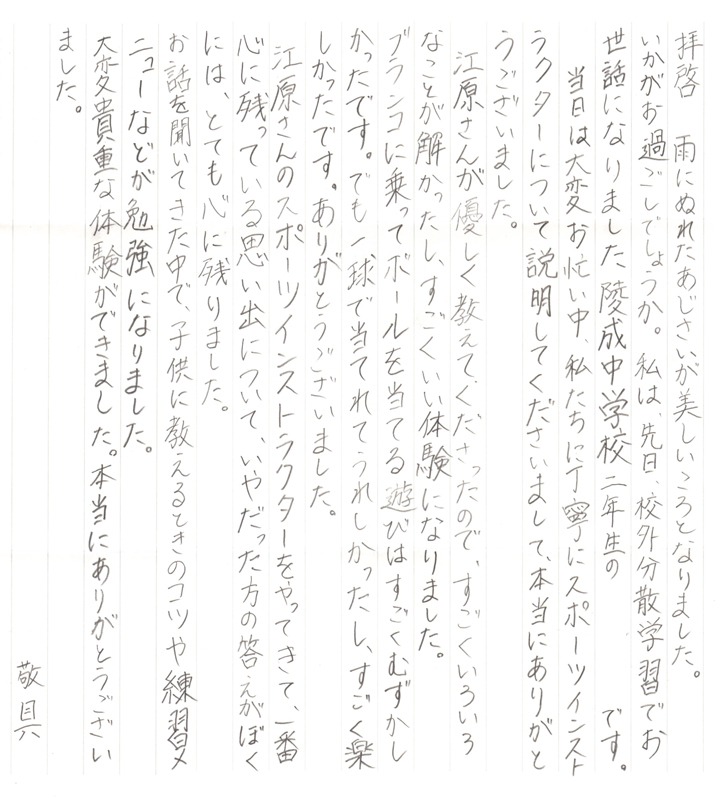 拝啓　雨にぬれたあじさいが美しいころとなりました。
いかがお過ごしでしょうか。私は、先日、校外分散学習でお
世話になりました陵成中学校二年生の　　　です。
当日は大変お忙い中、私たちに丁寧にスポーツインスト
ラクターについて説明してくださいまして、本当にありがと
うございました。
江原さんが優しく教えてくださったので、すごくいろいろ
なことが解かったし、すごくいい体験になりました。
ブランコに乗ってボールを当てる遊びはすごくむずかし
かったです。でも一球で当てれてうれしかったし、すごく楽
しかったです。ありがとうございました。
江原さんのスポーツインストラクターをやってきて、一番
心に残っている思い出について、いやだった方の答えがぼく
には、とても心に残りました。
お話を聞いてきた中で、子供に教えるときのコツや練習メ
ニューなどが勉強になりました。
大変貴重な体験ができました。本当にありがとうござい
ました。
敬具